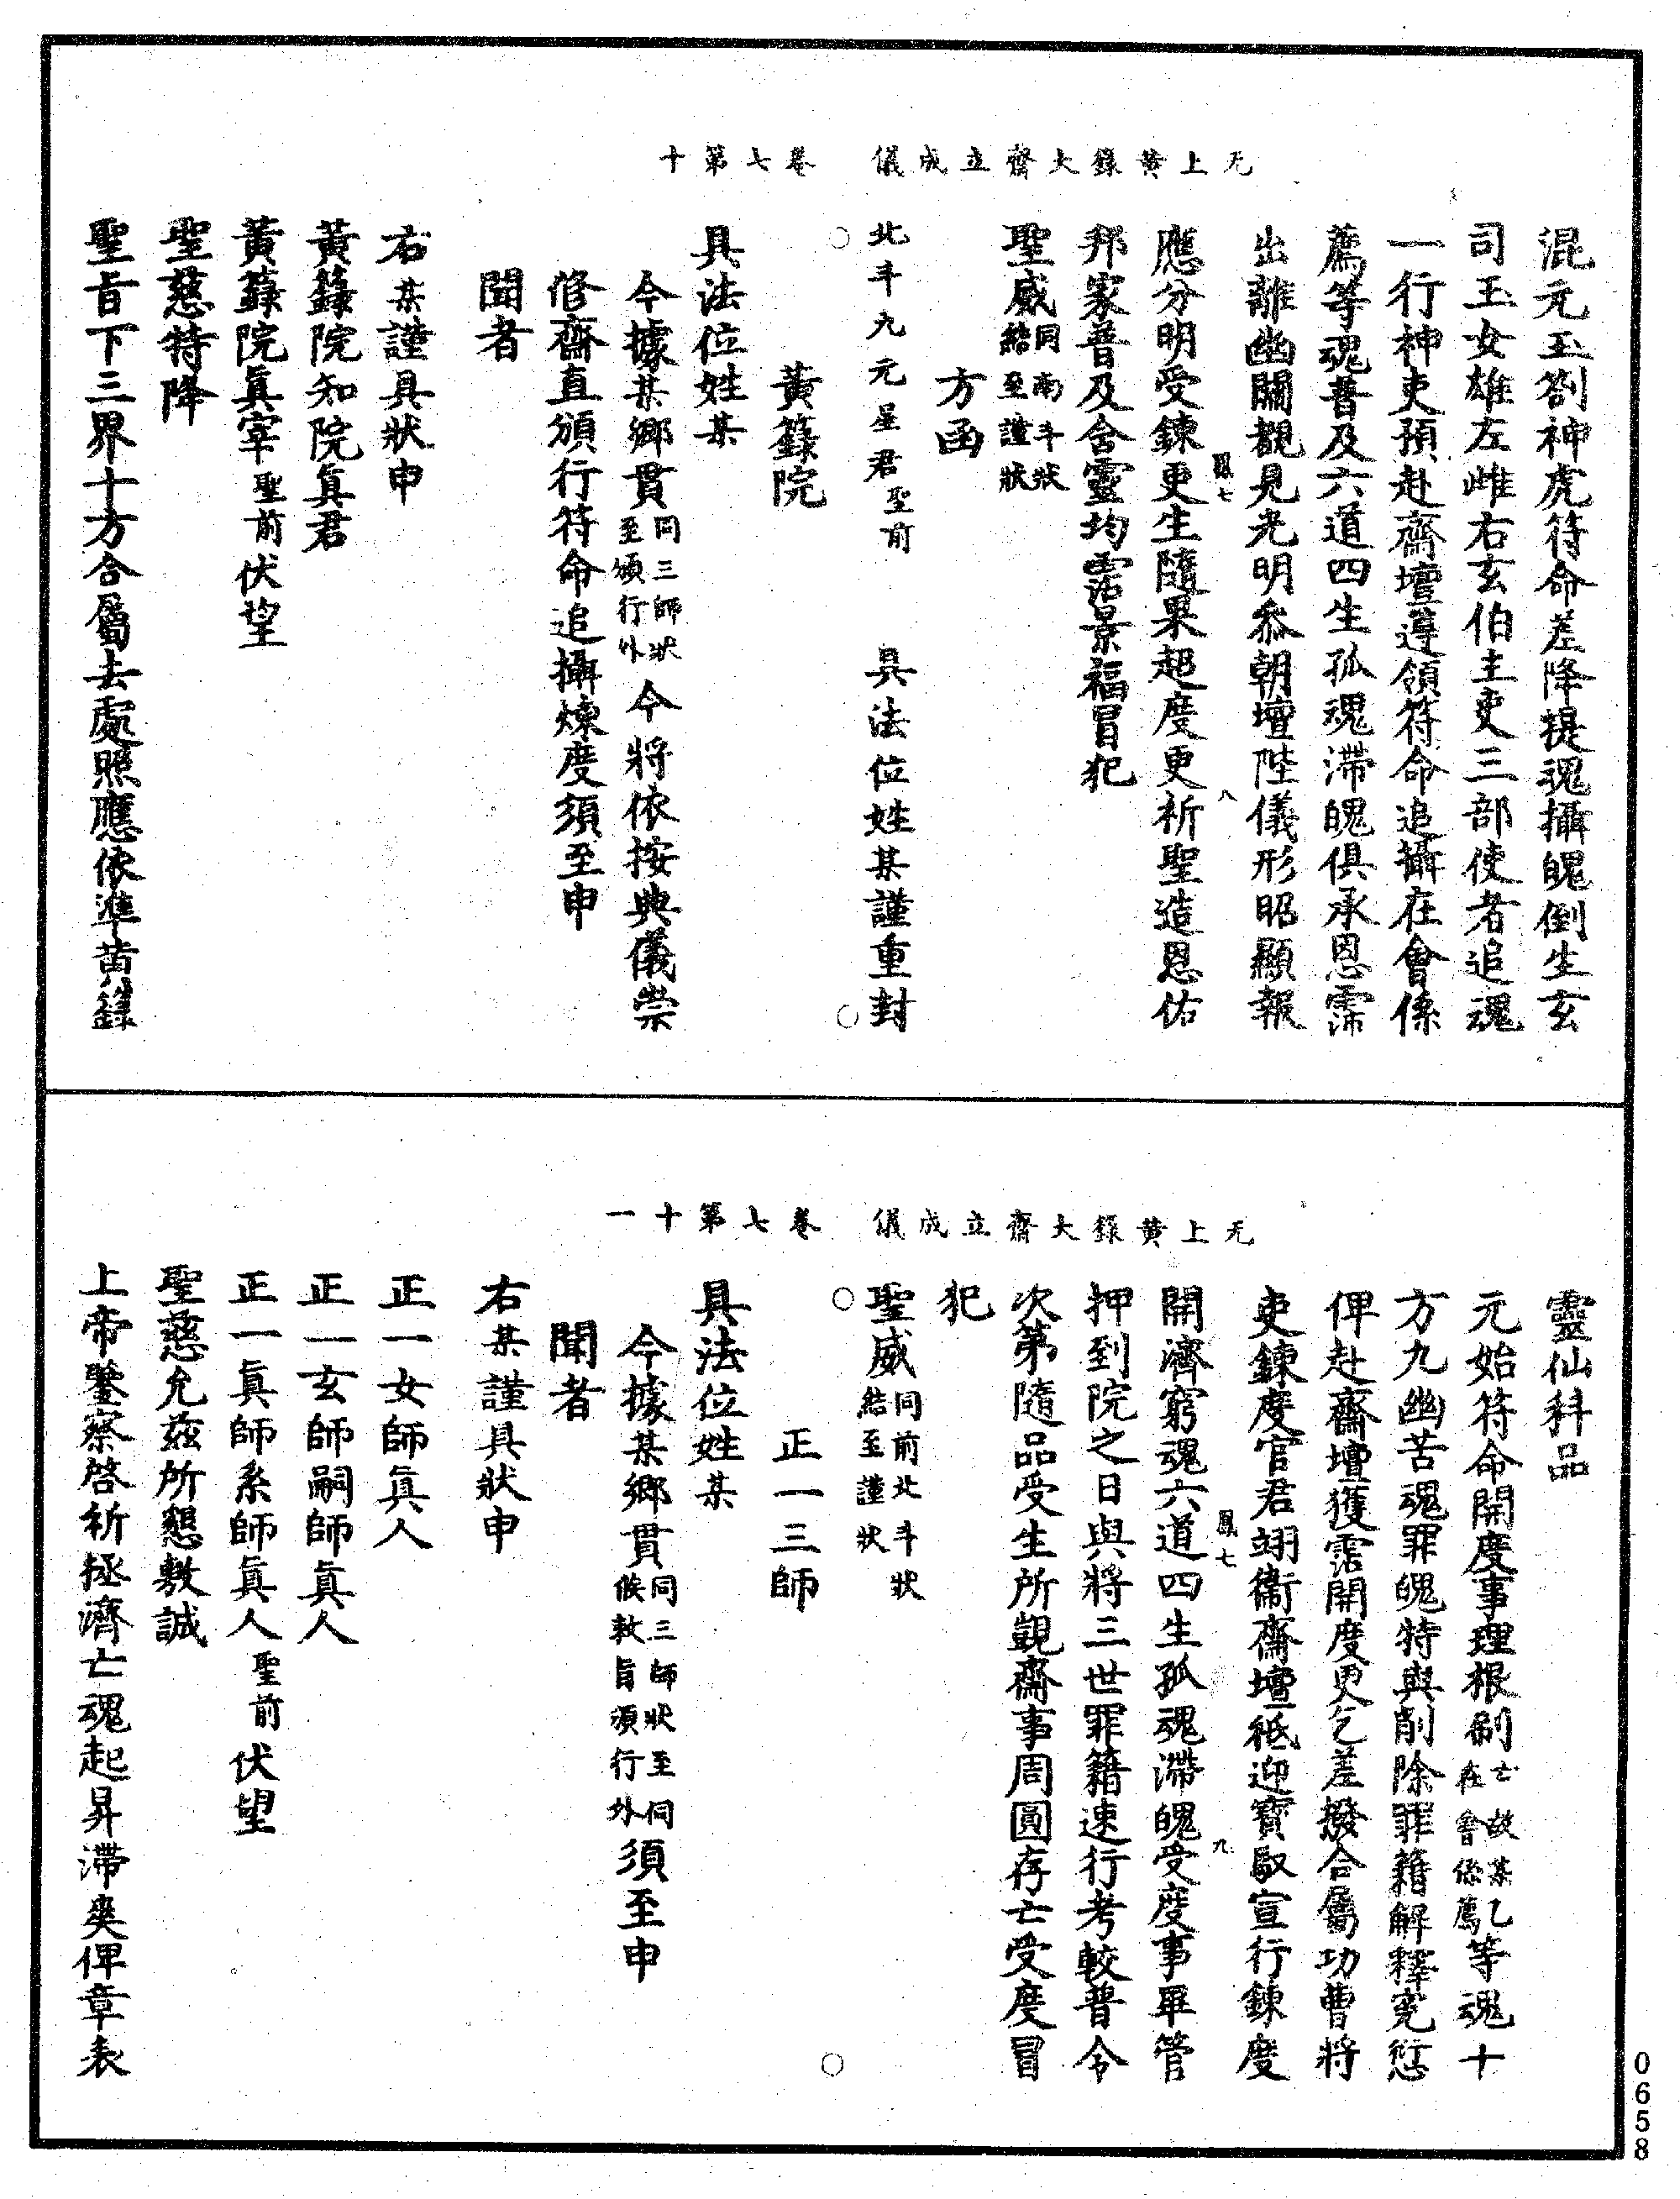 无上黄籙大齋立成儀　卷七第十
混元玉劄神虎符命差降提魂攝魄倒生玄
司玉女雄左雌右玄伯主吏三部使者追魂
一行神吏預赴齋壇遵領符命追攝在會係
薦等魂普及六道四生孤魂滯魄俱承恩霈
出離幽關覩見光明叅朝壇陛儀形昭顯報
鳳七　八
應分明受鍊更生隨果超度更祈聖造恩佑
邦家普及含靈均霑景福冒犯
聖威同南斗狀結至謹狀
方函
北斗九元星君聖前　具法位姓某謹重封
黃籙院
具法位姓某
今據某鄉貫同三師狀至頒行外今將依按典儀崇
修齋直頒行符命追攝煉度須至申
聞者
右某謹具狀申
黃籙院知院眞君
黃籙院眞宰聖前伏望
聖慈特降
聖旨下三界十方合屬去處照應依準黄籙
无上黄籙大齋立成儀　卷七第十一
靈仙科品
元始符命開度事理根刷亡故某乙在會係薦等魂十
方九幽苦魂罪魄特與削除罪籍解釋寃愆
俾赴齋壇獲霑開度更乞差撥合屬功曹將
吏鍊度官君翊衞齋壇祇迎寳馭宣行鍊度
鳳七　九
開濟窮魂六道四生孤魂滯魄受度事畢管
押到院之日與將三世罪籍速行考較普令
次第隨品受生所覬齋事周圓存亡受度冒
犯
聖威同前北斗狀結至謹狀
正一三師
具法位姓某
今據某鄉貫同三師狀至伺候敕旨須行外須至申
聞者
右某謹具狀申
正一女師眞人
正一玄師嗣師眞人
正一眞師系師眞人聖前伏望
聖慈允兹所懇敷誠
上帝鑒察啓祈拯濟亡魂起昇滯爽俾章表
0658